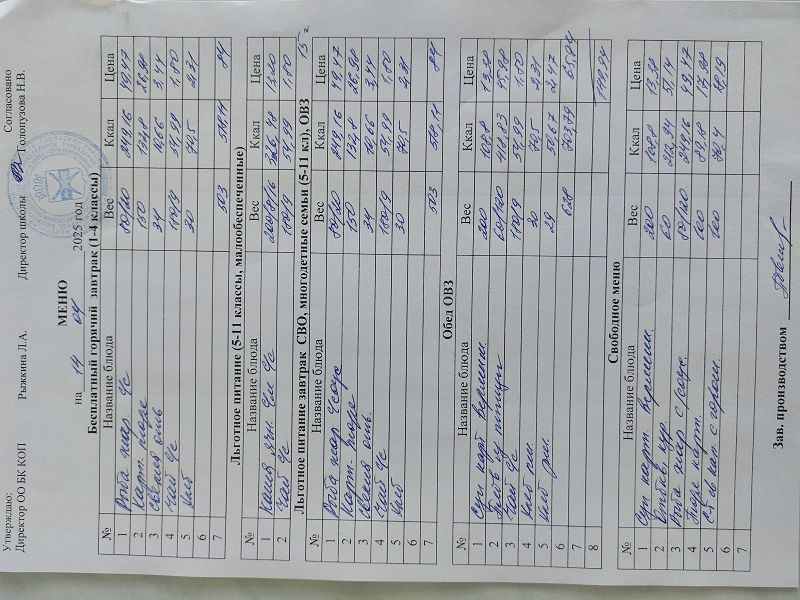 Утверждаю:
Согласовано
Директор ОО БК КОП Рыжкина Л.А. Директор школы Голопузова Н.В.
МЕНЮ
на 14 04 2025 год
Бесплатный горячий завтрак (1-4 классы)
№ Название блюда Вес Ккал Цена
1 Рыба жар. с/с 80/20 249,16 49,47
2 Карт. пюре 150 132,8 26,98
3 свекла отв 34 10,66 3,44
4 чай с/с 180/9 54,99 1,80
5 хлеб 30 70,5 2,31
6
7 503 518,11 84
Льготное питание (5-11 классы, малообеспеченные)
№ Название блюда Вес Ккал Цена
1 Каша 13.20
2 Чай с/с 180/9 54,99 1,80
15=
Льготное питание завтрак СВО, многодетные семьи (5-11 кл), ОВЗ
№ Название блюда Вес Ккал Цена
1 Рыба жар 80/20 249,16 49,47
2 Карт. пюре 150 132,8 26,98
3 свекла отв. 34 10,66 3,44
4 чай с/с 180/9 54,99 1,80
5 хлеб 30 70,5 2,31
6
7 503 518,11 84
Обед ОВЗ
№ Название блюда Вес Ккал Цена
1 Суп карт вермиш. 200 107,8 13,58
2 Плов из птицы 60/150 418,83 45,98
3 Чай с/с 180/9 54,99 1,80
4 Хлеб пш. 30 70,5 2,31
5 Хлеб рж. 29 51,67 2,47
6 628 703,79 65,94
7
8 149,94
Свободное меню
№ Название блюда Вес Ккал Цена
1 Суп карт. вермиш. 200 107,8 13,58
2 кур. 60 212,94 51,14
3 Рыба жар с 80/20 249,16 49,47
4 Пюре карт. 100 17,98
5 100 70,4
6
7
Зав. производством